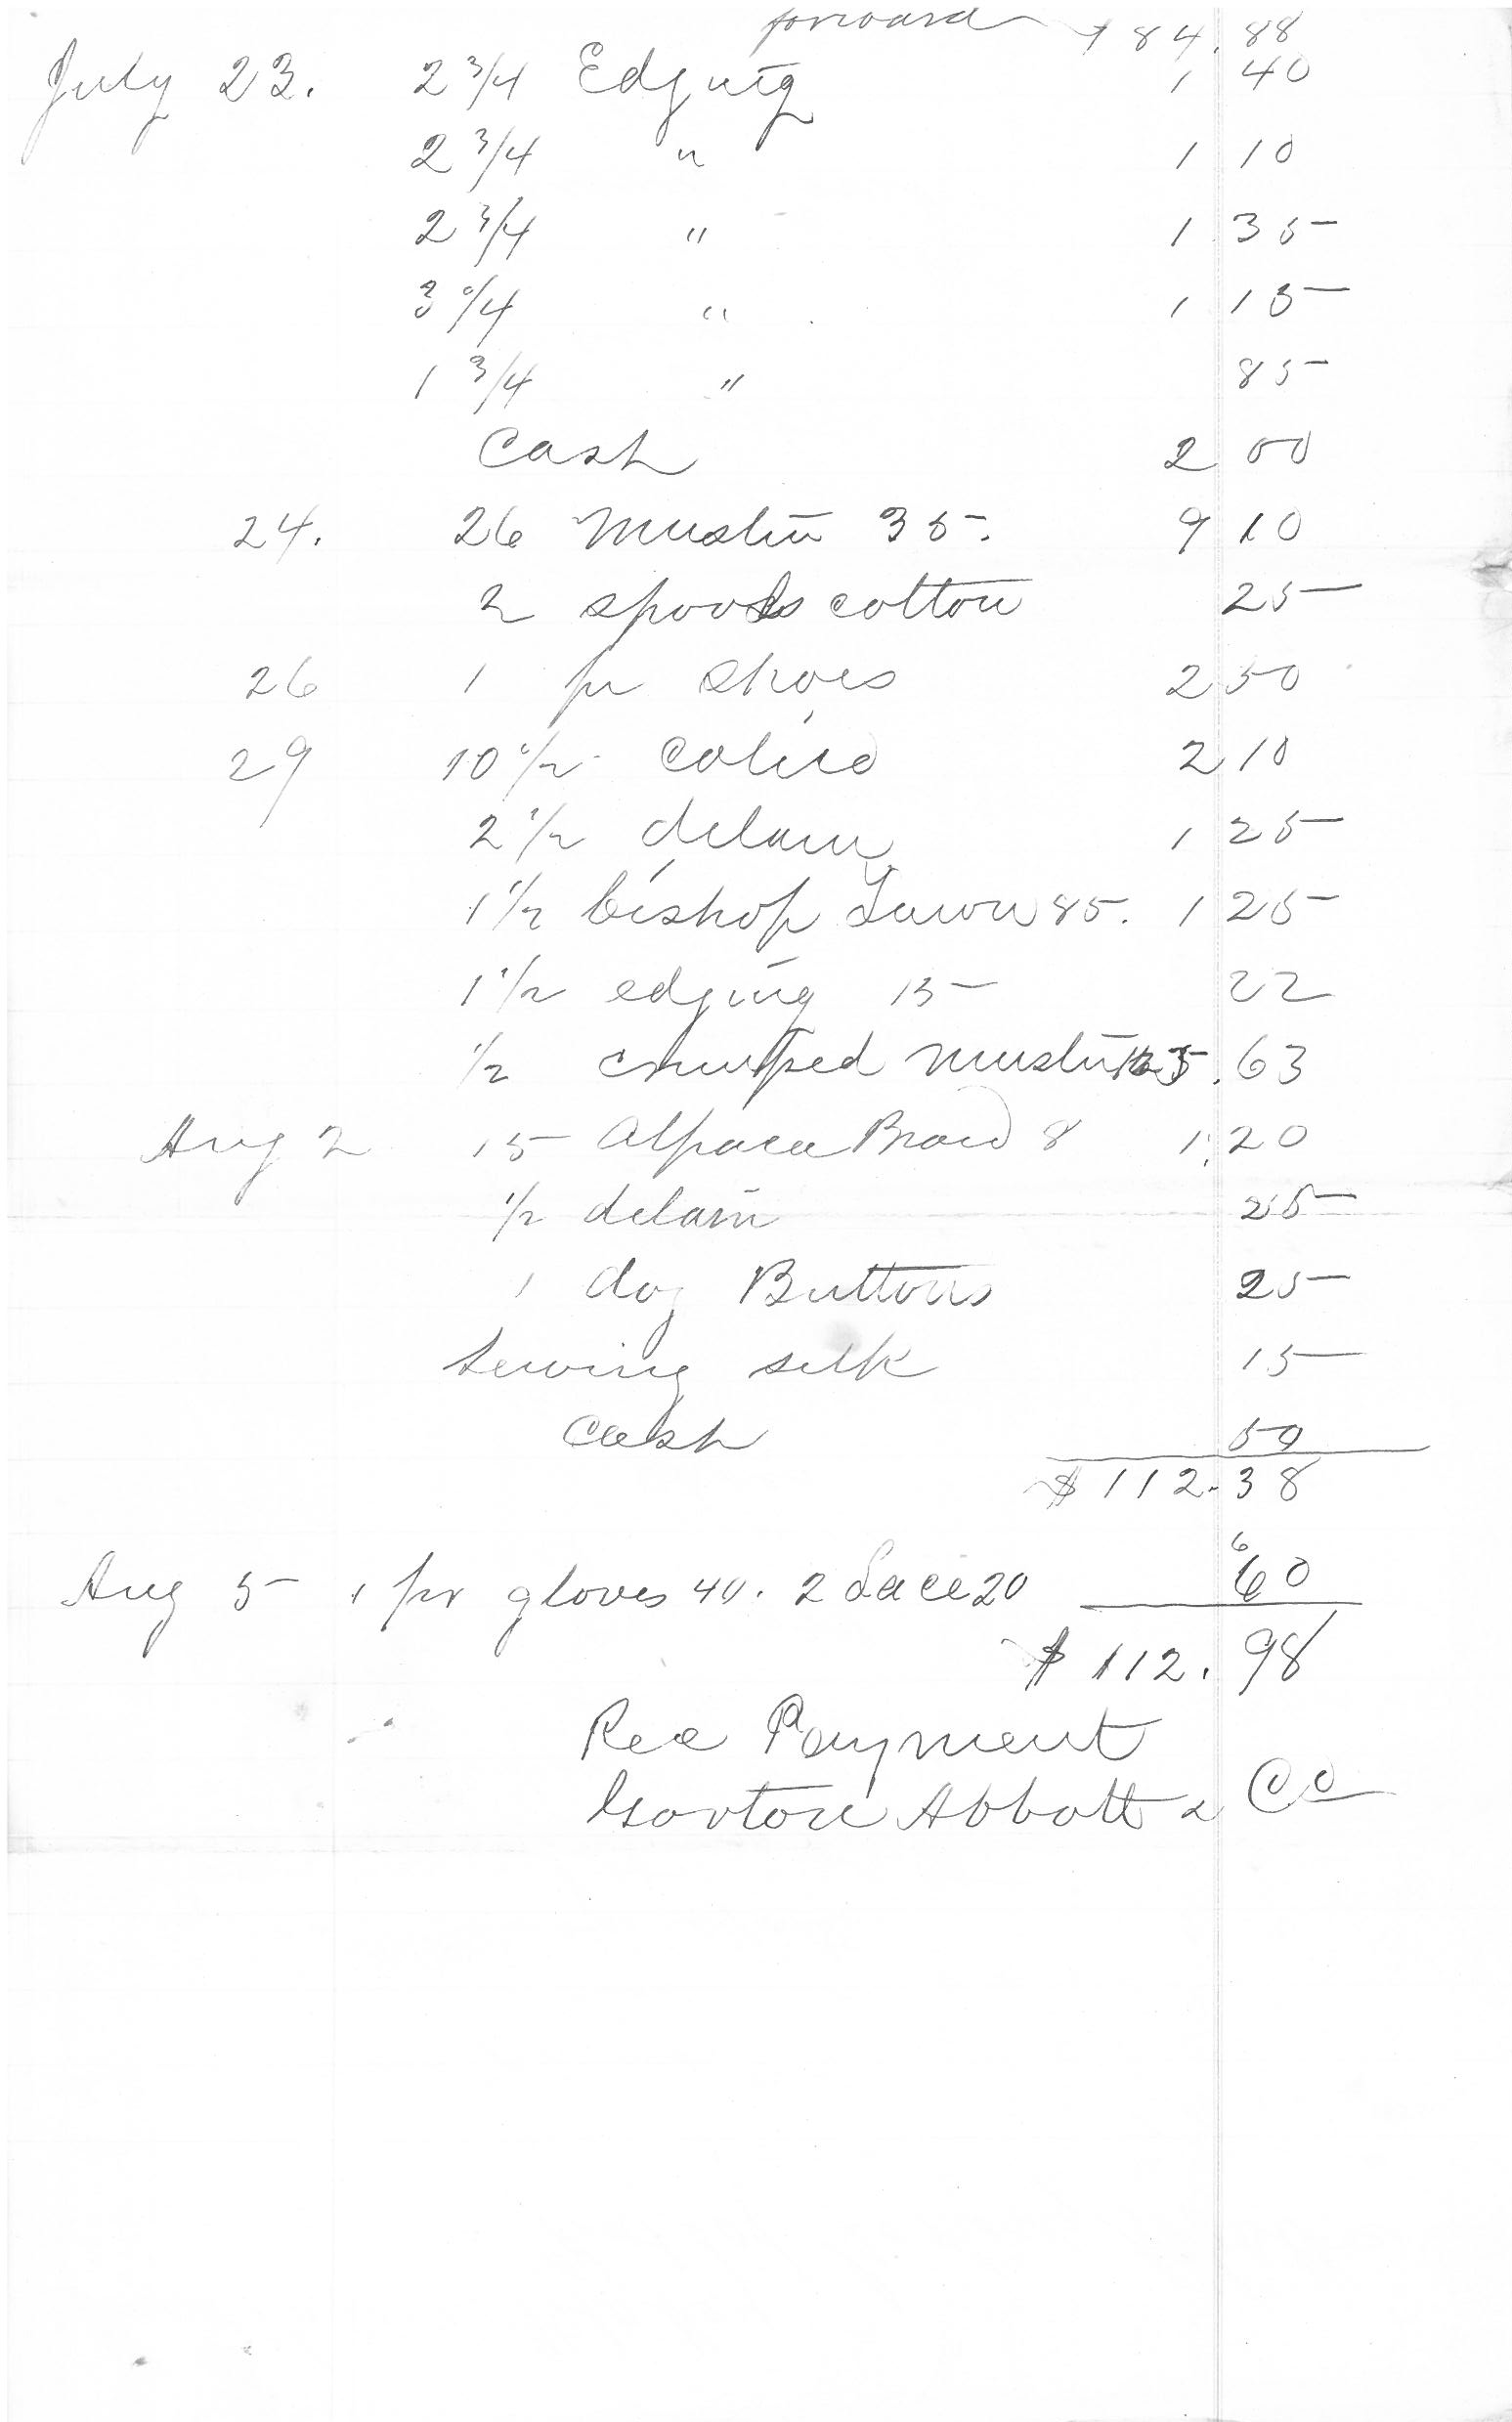 forward $84.88
July 23. 2 3/4 Edging 1 40
2 3/4 " 1 10
2 3/4 " 1 35
3 1/4 " 1 15
1 3/4 " 85
Cash 2 00
24. 26 Muslin 35. 9 10
2 spools cotton 25
26 1 pr shoes 2 50
29 10 1/2 Calico 2 10
2 1/2 delain 1 25
1 1/2 bishop Lawn 85. 1 25
1 1/2 edging 15 22
1/2 crimped muslin 125. 63
Aug 2 15 Alpaca Braid 8 1.20
1/2 delain 25
1 doz Buttons 25
Sewing silk 15
Cash 50
$112.38
Aug 5 1 pr gloves 40. 2 Lace 20 60
$112.98
Rec Payment
Gorton Abbott & Co